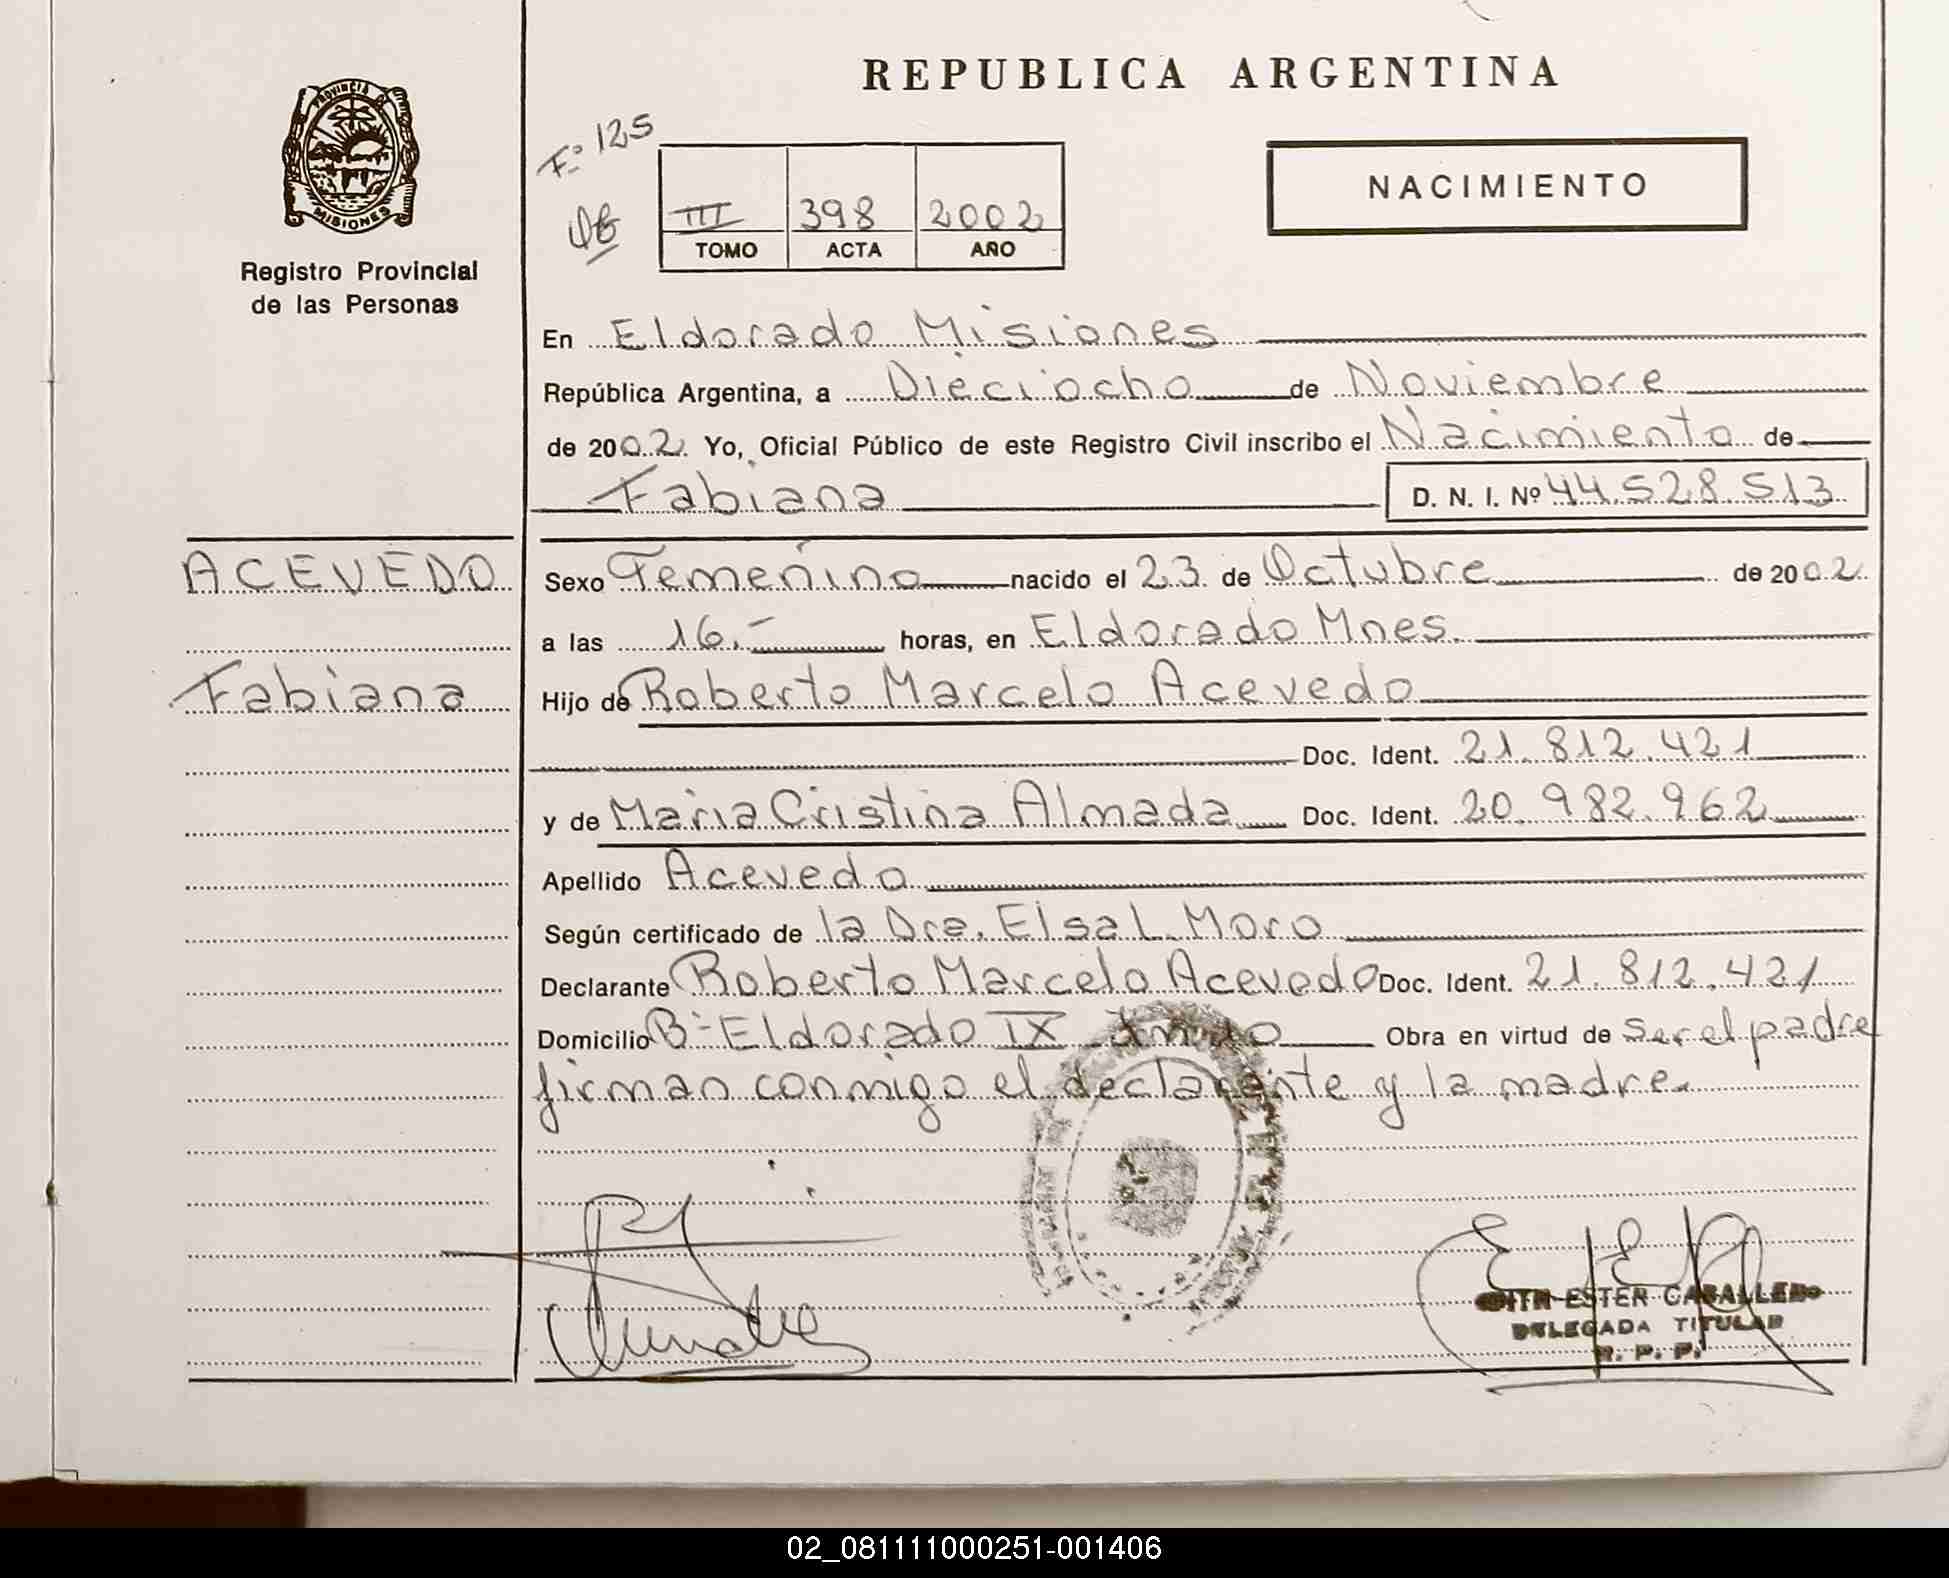 REPUBLICA ARGENTINA
PROVINCIA DE
MISIONES
Registro Provincial
de las Personas
Fº 125
III 398 2002
TOMO ACTA AÑO
NACIMIENTO
En Eldorado Misiones
República Argentina, a Dieciocho de Noviembre
de 2002. Yo, Oficial Público de este Registro Civil inscribo el Nacimiento de
Fabiana D. N. I. Nº 44.528.513
ACEVEDO
Fabiana
Sexo Femenino nacido el 23 de Octubre de 2002
a las 16.- horas, en Eldorado Mnes.
Hijo de Roberto Marcelo Acevedo
Doc. Ident. 21.812.421
y de Maria Cristina Almada Doc. Ident. 20.982.962
Apellido Acevedo
Según certificado de la Dra. Elsa L. Moro
Declarante Roberto Marcelo Acevedo Doc. Ident. 21.812.421
Domicilio Bº Eldorado IX Obra en virtud de ser el padre
firman conmigo el declarante y la madre.
ESTER CABALLERO
DELEGADA TITULAR
R. P. P.
02_081111000251-001406